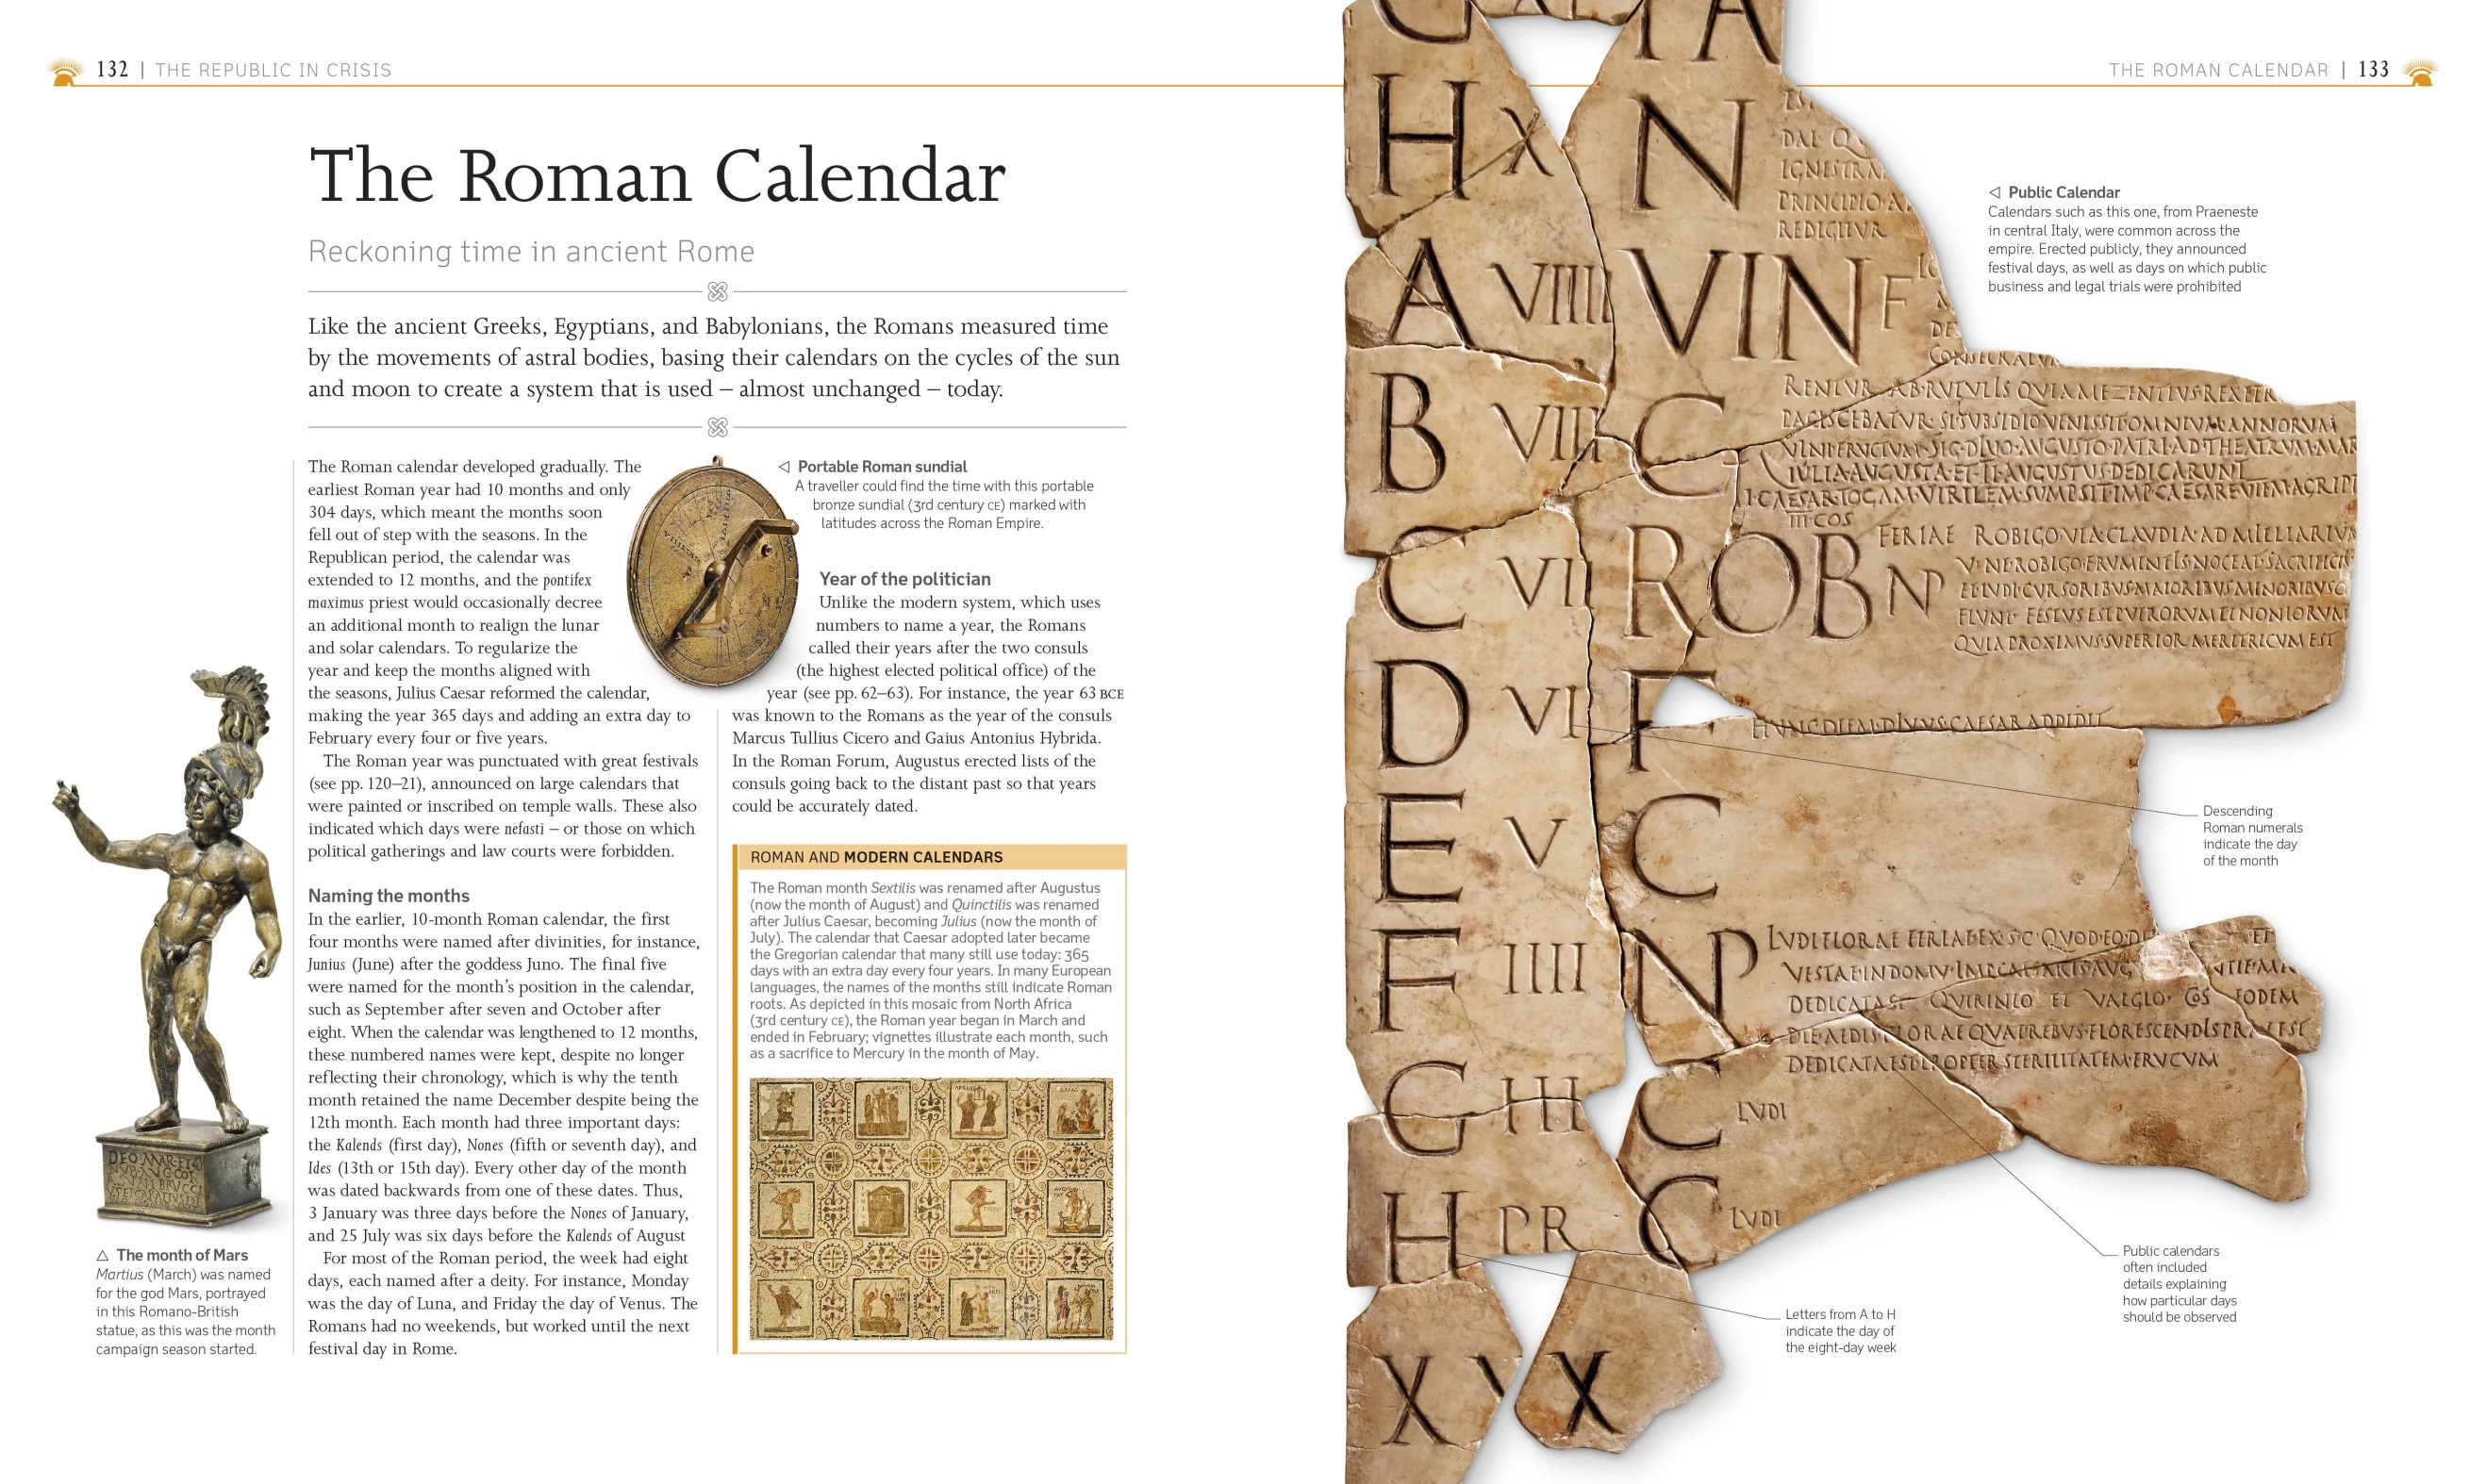 132 | THE REPUBLIC IN CRISIS
The Roman Calendar
Reckoning time in ancient Rome
Like the ancient Greeks, Egyptians, and Babylonians, the Romans measured time
by the movements of astral bodies, basing their calendars on the cycles of the sun
and moon to create a system that is used – almost unchanged – today.
The Roman calendar developed gradually. The
earliest Roman year had 10 months and only
304 days, which meant the months soon
fell out of step with the seasons. In the
Republican period, the calendar was
extended to 12 months, and the pontifex
maximus priest would occasionally decree
an additional month to realign the lunar
and solar calendars. To regularize the
year and keep the months aligned with
the seasons, Julius Caesar reformed the calendar,
making the year 365 days and adding an extra day to
February every four or five years.
The Roman year was punctuated with great festivals
(see pp. 120–21), announced on large calendars that
were painted or inscribed on temple walls. These also
indicated which days were nefasti – or those on which
political gatherings and law courts were forbidden.
Naming the months
In the earlier, 10-month Roman calendar, the first
four months were named after divinities, for instance,
Junius (June) after the goddess Juno. The final five
were named for the month's position in the calendar,
such as September after seven and October after
eight. When the calendar was lengthened to 12 months,
these numbered names were kept, despite no longer
reflecting their chronology, which is why the tenth
month retained the name December despite being the
12th month. Each month had three important days:
the Kalends (first day), Nones (fifth or seventh day), and
Ides (13th or 15th day). Every other day of the month
was dated backwards from one of these dates. Thus,
3 January was three days before the Nones of January,
and 25 July was six days before the Kalends of August
For most of the Roman period, the week had eight
days, each named after a deity. For instance, Monday
was the day of Luna, and Friday the day of Venus. The
Romans had no weekends, but worked until the next
festival day in Rome.
△ The month of Mars
Martius (March) was named
for the god Mars, portrayed
in this Romano-British
statue, as this was the month
campaign season started.
◁ Portable Roman sundial
A traveller could find the time with this portable
bronze sundial (3rd century CE) marked with
latitudes across the Roman Empire.
Year of the politician
Unlike the modern system, which uses
numbers to name a year, the Romans
called their years after the two consuls
(the highest elected political office) of the
year (see pp. 62–63). For instance, the year 63 BCE
was known to the Romans as the year of the consuls
Marcus Tullius Cicero and Gaius Antonius Hybrida.
In the Roman Forum, Augustus erected lists of the
consuls going back to the distant past so that years
could be accurately dated.
ROMAN AND MODERN CALENDARS
The Roman month Sextilis was renamed after Augustus
(now the month of August) and Quinctilis was renamed
after Julius Caesar, becoming Julius (now the month of
July). The calendar that Caesar adopted later became
the Gregorian calendar that many still use today: 365
days with an extra day every four years. In many European
languages, the names of the months still indicate Roman
roots. As depicted in this mosaic from North Africa
(3rd century CE), the Roman year began in March and
ended in February; vignettes illustrate each month, such
as a sacrifice to Mercury in the month of May.
THE ROMAN CALENDAR | 133
◁ Public Calendar
Calendars such as this one, from Praeneste
in central Italy, were common across the
empire. Erected publicly, they announced
festival days, as well as days on which public
business and legal trials were prohibited
H X N
PRINCIPIO
REDIGITVR
A VIIII VIN F
B VIII C
IVLIA AVGVSTA ET TI AVGVSTVS DEDICARVNT
III COS
C VII ROB NP
FERIAE ROBIGO VIA CLAVDIA AD MILLIARIV
D VI F
HVNC DIEM DIVVS CAESAR ADDIDIT
E V C
F IIII NP
G III C LVDI
H PR C LVDI
X X
Descending
Roman numerals
indicate the day
of the month
Public calendars
often included
details explaining
how particular days
should be observed
Letters from A to H
indicate the day of
the eight-day week